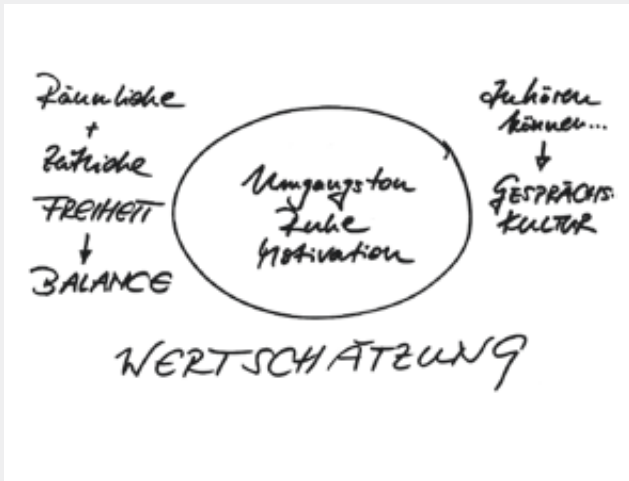 Räumliche
+
Zeitliche
FREIHEIT
↓
BALANCE
Umgangston
Ruhe
Motivation
Zuhören
können...
↓
GESPRÄCHS-
KULTUR
WERTSCHÄTZUNG